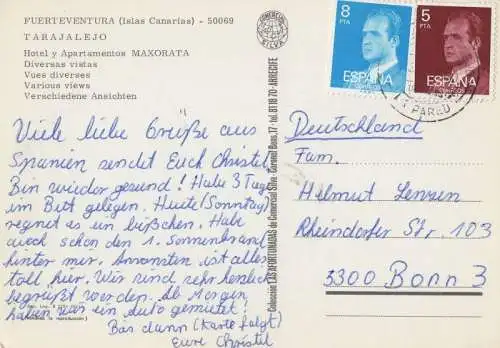 FUERTEVENTURA (Islas Canarias) - 50069
TARAJALEJO
Hotel y Apartamentos MAXORATA
Diversas vistas
Vues diverses
Various views
Verschiedene Ansichten
COMERCIAL
SILVA
8
PTA
ESPAÑA
CORREOS
5
PTA
ESPAÑA
CORREOS
Viele liebe Grüße aus
Spanien sendet Euch Christel
Bin wieder gesund! Habe 3 Tage
im Bett gelegen. Heute (Sonntag)
regnet es ein bißchen. Habe
auch schon den 1. Sonnenbrand
hinter mir. Ansonsten ist alles
toll hier. Wir sind sehr herzlich
begrüßt worden. Ab Morgen
haben wir ein Auto gemietet!
Bis dann (Karte folgt)
Eure Christel
Colección LAS AFORTUNADAS de Comercial Silva - Coronel Bens, 17 - tel. 81 18 70 - ARRECIFE
Deutschland
Fam.
Helmut Lenzen
Rheindorfer Str. 103
5300 Bonn 3